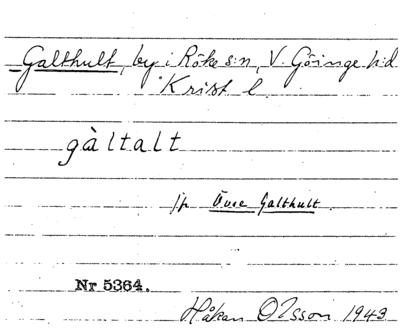 Galthult, by i Röke s:n, V. Göinge hd
Krist l.
gàltalt
jfr Övre Galthult.
Nr 5364.
Håkan Olsson 1943